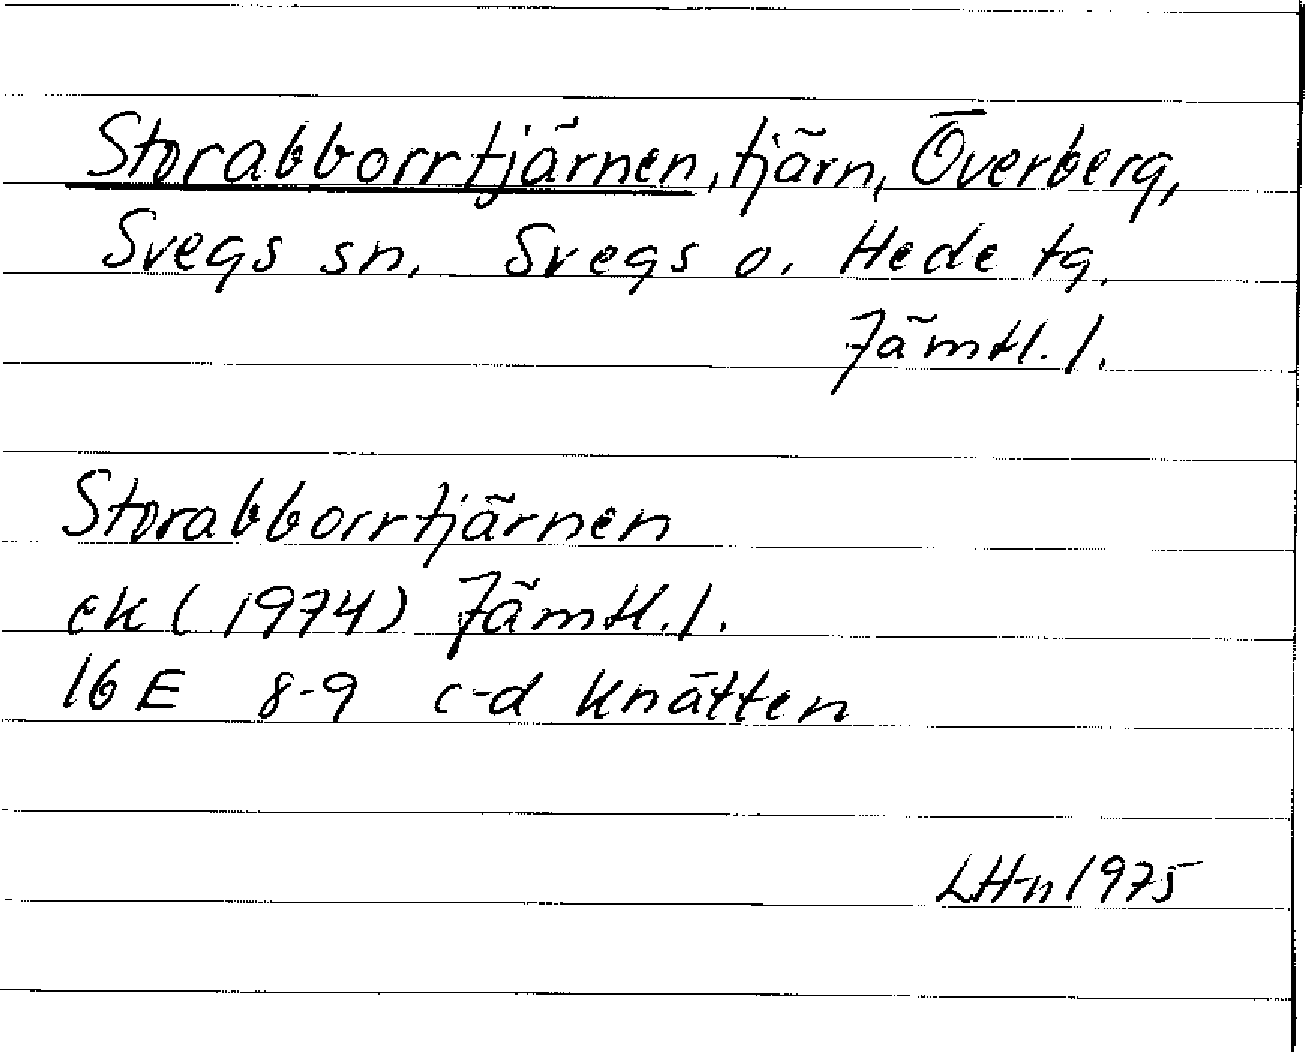 Storabborrtjärnen, tjärn, Överberg,
Svegs sn. Svegs o. Hede tg.
Jämtl. l.
Storabborrtjärnen
ek (1974) Jämtl. l.
16 E 8-9 c-d Knätten
LH-n 1975